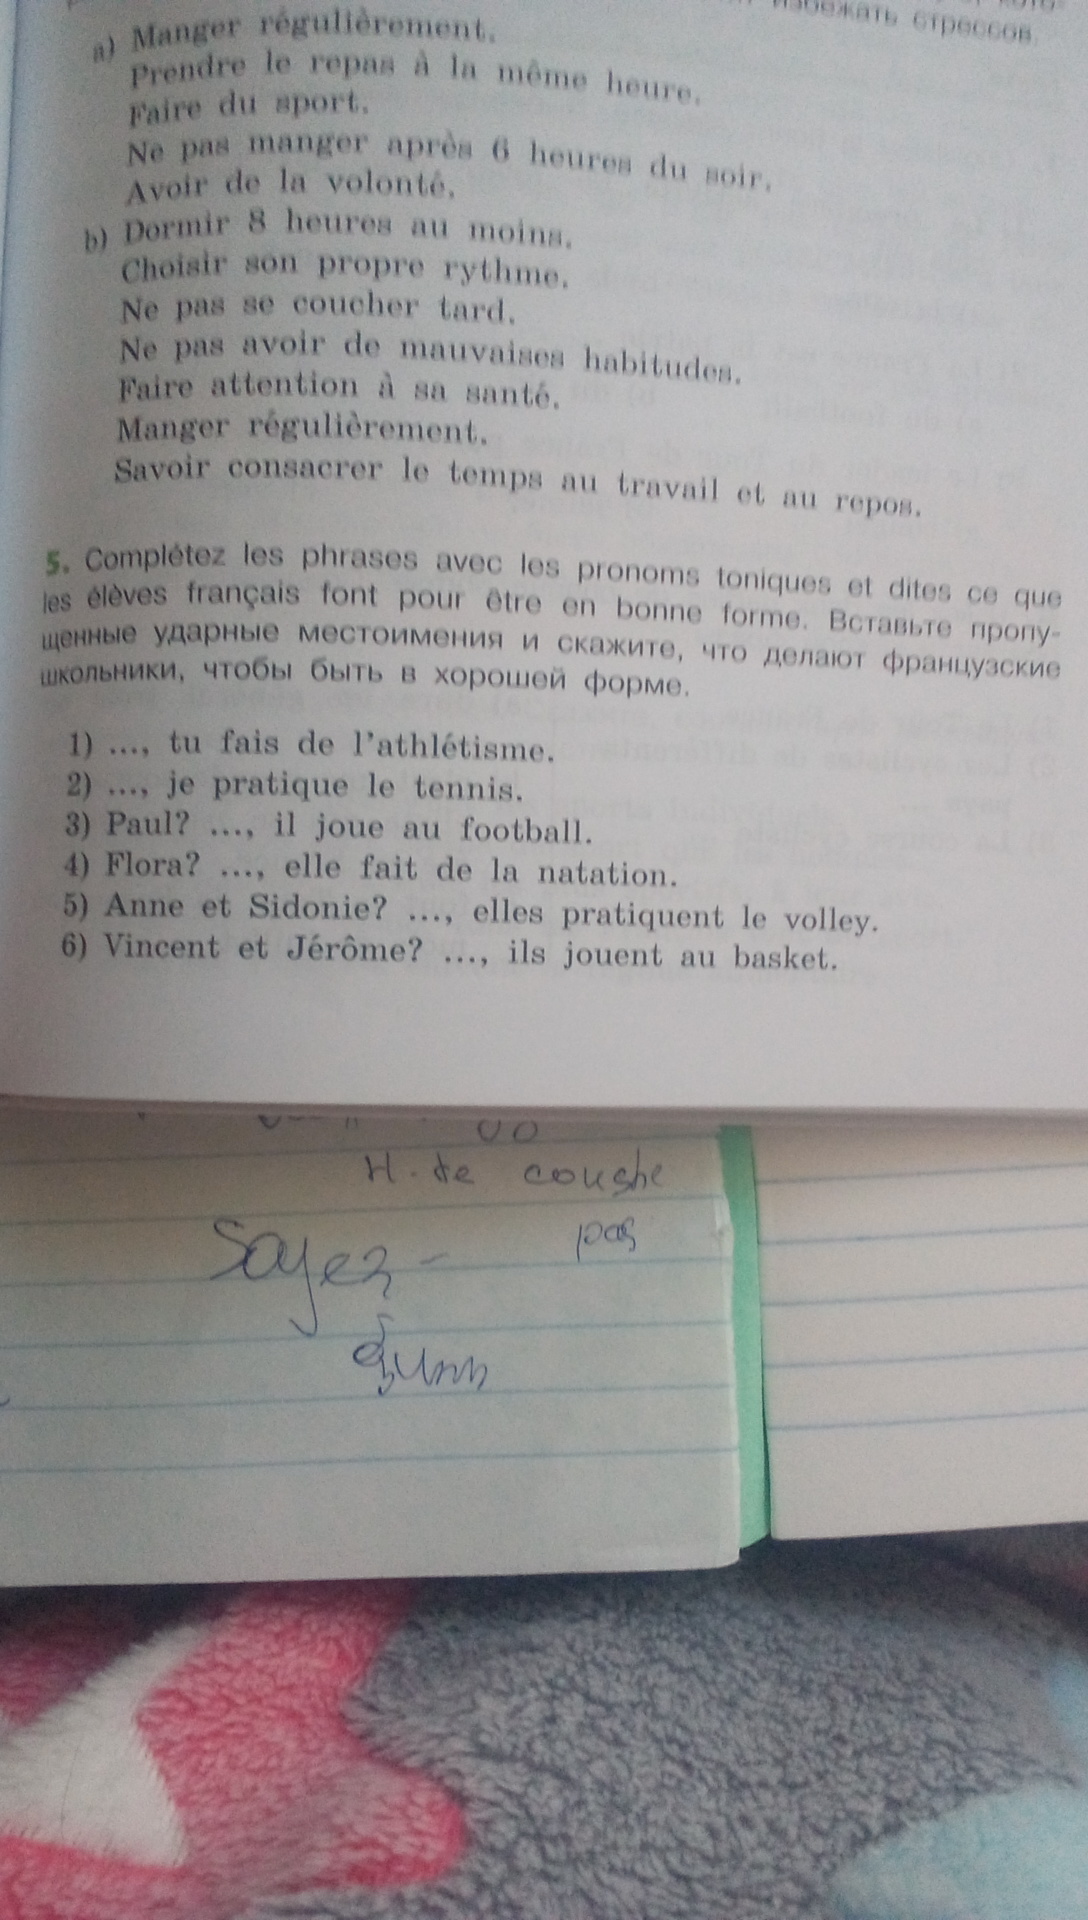 избежать стрессов.
a) Manger régulièrement.
Prendre le repas à la même heure.
Faire du sport.
Ne pas manger après 6 heures du soir.
Avoir de la volonté.
b) Dormir 8 heures au moins.
Choisir son propre rythme.
Ne pas se coucher tard.
Ne pas avoir de mauvaises habitudes.
Faire attention à sa santé.
Manger régulièrement.
Savoir consacrer le temps au travail et au repos.
5. Complétez les phrases avec les pronoms toniques et dites ce que
les élèves français font pour être en bonne forme. Вставьте пропу-
щенные ударные местоимения и скажите, что делают французские
школьники, чтобы быть в хорошей форме.
1) ..., tu fais de l'athlétisme.
2) ..., je pratique le tennis.
3) Paul? ..., il joue au football.
4) Flora? ..., elle fait de la natation.
5) Anne et Sidonie? ..., elles pratiquent le volley.
6) Vincent et Jérôme? ..., ils jouent au basket.
te coushe
pas
Soyez -